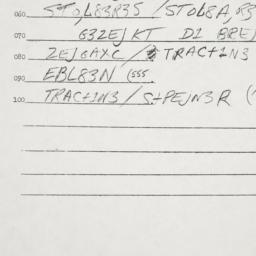 060 STOL83R35 / STOL8A,R3
070 G3ZEJKT D1 BRE
080 ZEJGAXC / TRACT1N3
090 EBL83N (555.
100 TRACT1N3 / S1PEJN3R (